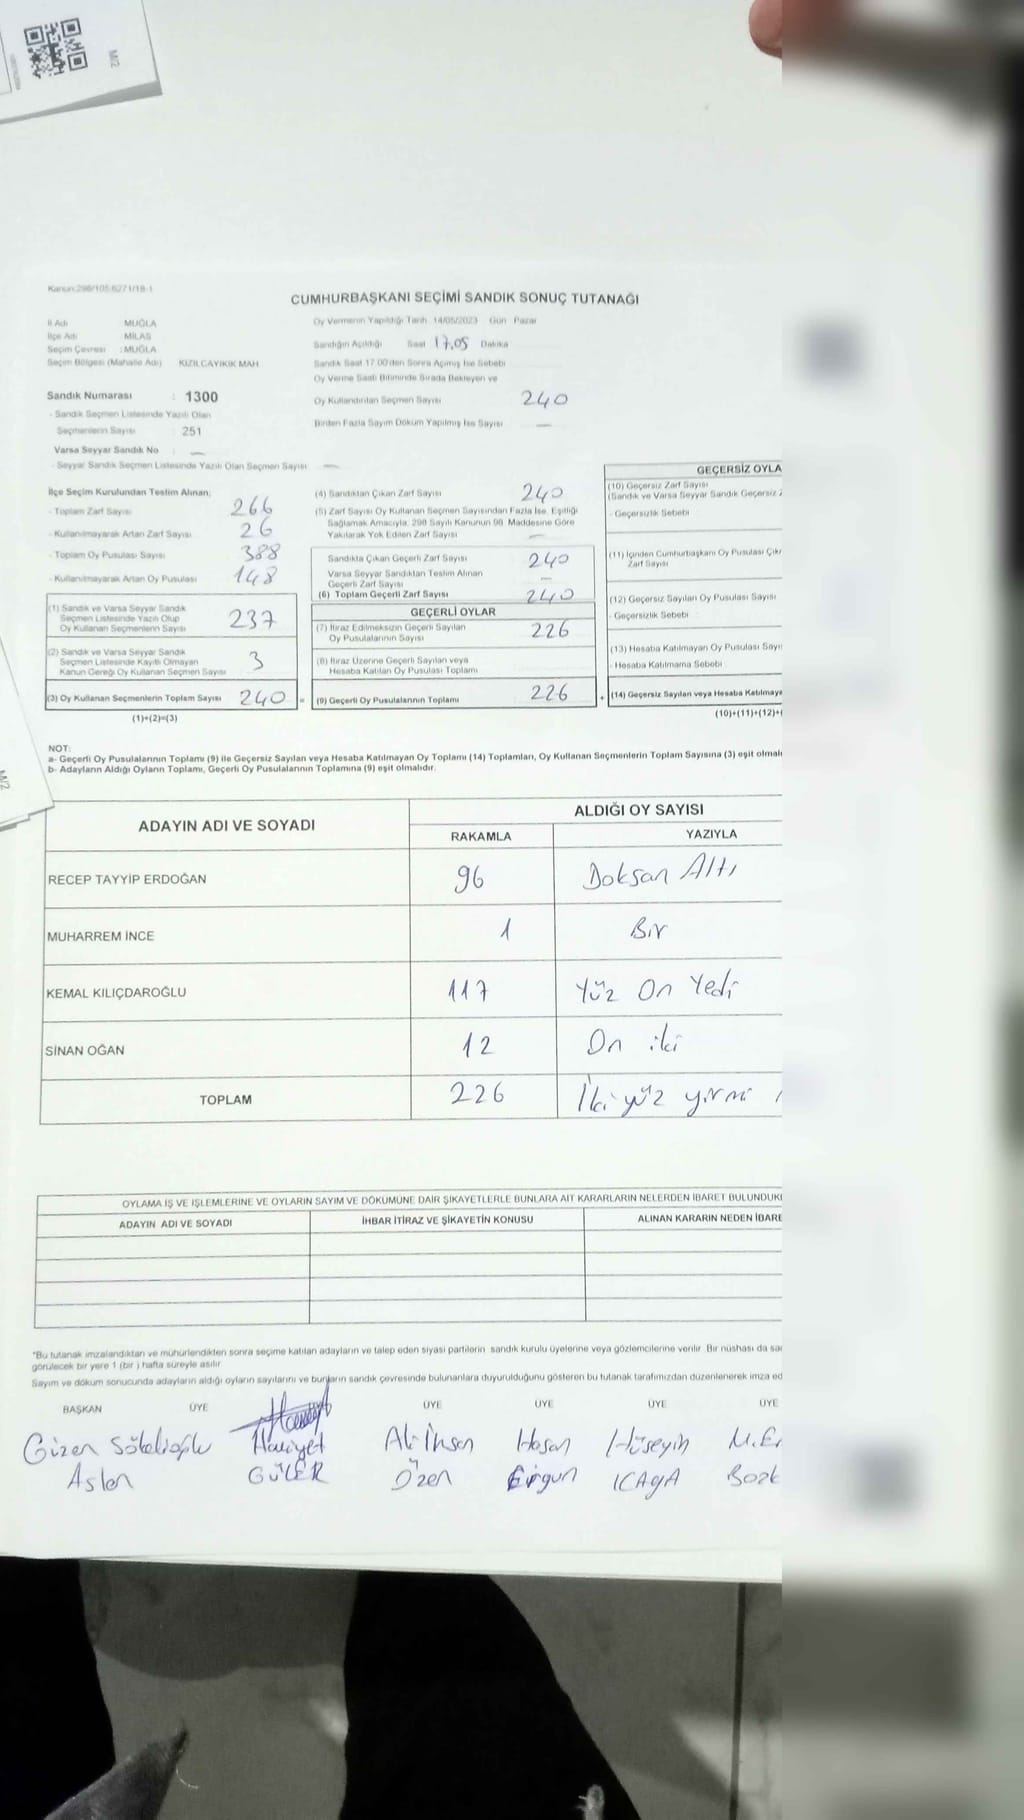 M/2
Kanun:298/105,6271/18-1
CUMHURBAŞKANI SEÇİMİ SANDIK SONUÇ TUTANAĞI
İl Adı : MUĞLA
İlçe Adı : MİLAS
Seçim Çevresi : MUĞLA
Seçim Bölgesi (Mahalle Adı) KIZILCAYIKIK MAH.
Sandık Numarası : 1300
- Sandık Seçmen Listesinde Yazılı Olan
Seçmenlerin Sayısı : 251
Varsa Seyyar Sandık No : —
- Seyyar Sandık Seçmen Listesinde Yazılı Olan Seçmen Sayısı : —
Oy Vermenin Yapıldığı Tarih 14/05/2023 Gün Pazar
Sandığın Açıldığı Saat 17.05 Dakika
Sandık Saat 17.00'den Sonra Açılmış İse Sebebi
Oy Verme Saati Bitiminde Sırada Bekleyen ve
Oy Kullandırılan Seçmen Sayısı 240
Birden Fazla Sayım Döküm Yapılmış İse Sayısı —
İlçe Seçim Kurulundan Teslim Alınan;
- Toplam Zarf Sayısı 266
- Kullanılmayarak Artan Zarf Sayısı 26
- Toplam Oy Pusulası Sayısı 388
- Kullanılmayarak Artan Oy Pusulası 148
(1) Sandık ve Varsa Seyyar Sandık
Seçmen Listesinde Yazılı Olup
Oy Kullanan Seçmenlerin Sayısı 237
(2) Sandık ve Varsa Seyyar Sandık
Seçmen Listesinde Kayıtlı Olmayan
Kanun Gereği Oy Kullanan Seçmen Sayısı 3
(3) Oy Kullanan Seçmenlerin Toplam Sayısı 240 =
(1)+(2)=(3)
(4) Sandıktan Çıkan Zarf Sayısı 240
(5) Zarf Sayısı Oy Kullanan Seçmen Sayısından Fazla İse, Eşitliği
Sağlamak Amacıyla, 298 Sayılı Kanunun 98. Maddesine Göre
Yakılarak Yok Edilen Zarf Sayısı —
Sandıkta Çıkan Geçerli Zarf Sayısı 240
Varsa Seyyar Sandıktan Teslim Alınan
Geçerli Zarf Sayısı —
(6) Toplam Geçerli Zarf Sayısı 240
GEÇERLİ OYLAR
(7) İtiraz Edilmeksizin Geçerli Sayılan
Oy Pusulalarının Sayısı 226
(8) İtiraz Üzerine Geçerli Sayılan veya
Hesaba Katılan Oy Pusulası Toplamı
(9) Geçerli Oy Pusulalarının Toplamı 226 +
GEÇERSİZ OYLA
(10) Geçersiz Zarf Sayısı
(Sandık ve Varsa Seyyar Sandık Geçersiz
- Geçersizlik Sebebi
(11) İçinden Cumhurbaşkanı Oy Pusulası Çık
Zarf Sayısı
(12) Geçersiz Sayılan Oy Pusulası Sayısı
- Geçersizlik Sebebi
(13) Hesaba Katılmayan Oy Pusulası Sayı
- Hesaba Katılmama Sebebi
(14) Geçersiz Sayılan veya Hesaba Katılmaya
(10)+(11)+(12)+(
NOT:
a- Geçerli Oy Pusulalarının Toplamı (9) ile Geçersiz Sayılan veya Hesaba Katılmayan Oy Toplamı (14) Toplamları, Oy Kullanan Seçmenlerin Toplam Sayısına (3) eşit olmalı
b- Adayların Aldığı Oyların Toplamı, Geçerli Oy Pusulalarının Toplamına (9) eşit olmalıdır.
M/2
ADAYIN ADI VE SOYADI ALDIĞI OY SAYISI
RAKAMLA YAZIYLA
RECEP TAYYİP ERDOĞAN 96 Doksan Altı
MUHARREM İNCE 1 Bir
KEMAL KILIÇDAROĞLU 117 Yüz On Yedi
SİNAN OĞAN 12 On iki
TOPLAM 226 İki yüz yirmi
OYLAMA İŞ VE İŞLEMLERİNE VE OYLARIN SAYIM VE DÖKÜMÜNE DAİR ŞİKAYETLERLE BUNLARA AİT KARARLARIN NELERDEN İBARET BULUNDUK
ADAYIN ADI VE SOYADI İHBAR İTİRAZ VE ŞİKAYETİN KONUSU ALINAN KARARIN NEDEN İBARE
*Bu tutanak imzalandıktan ve mühürlendikten sonra seçime katılan adayların ve talep eden siyasi partilerin sandık kurulu üyelerine veya gözlemcilerine verilir. Bir nüshası da sa
görülecek bir yere 1 (bir ) hafta süreyle asılır.
Sayım ve döküm sonucunda adayların aldığı oyların sayılarını ve bunların sandık çevresinde bulunanlara duyurulduğunu gösteren bu tutanak tarafımızdan düzenlenerek imza ed
BAŞKAN ÜYE ÜYE ÜYE ÜYE ÜYE
Gizen Sökelioğlu Hüriyet Ali İhsan Hasan Hüseyin M.E
Aslan GÜLER Özen Ergun ICAĞA Bozk